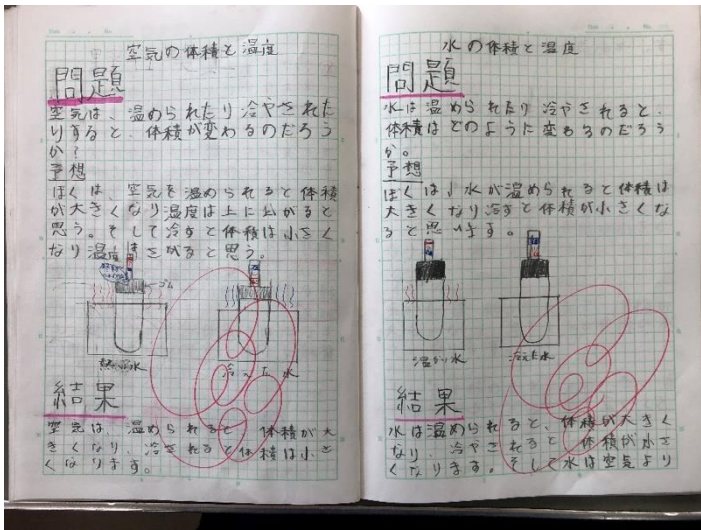 空気の体積と温度
問題
空気は、温められたり冷やされた
りすると、体積が変わるのだろう
か?
予想
ぼくは、空気を温められると体積
が大きくなり温度は上に上がると
思う。そして冷すと体積は小さく
なり温度はさがると思う。
ゴム
結果
空気は、温められると、体積が大
きくなり、冷やされると体積は小さ
くなります。
水の体積と温度
問題
水は温められたり冷やされると、
体積はどのように変わるのだろう
か。
予想
ぼくは、水が温められると体積は
大きくなり冷すと体積が小さくな
ると思います。
冷えた水
結果
水は温められると、体積が大きく
なり、冷やされると、体積が小さ
くなります。そして水は空気より